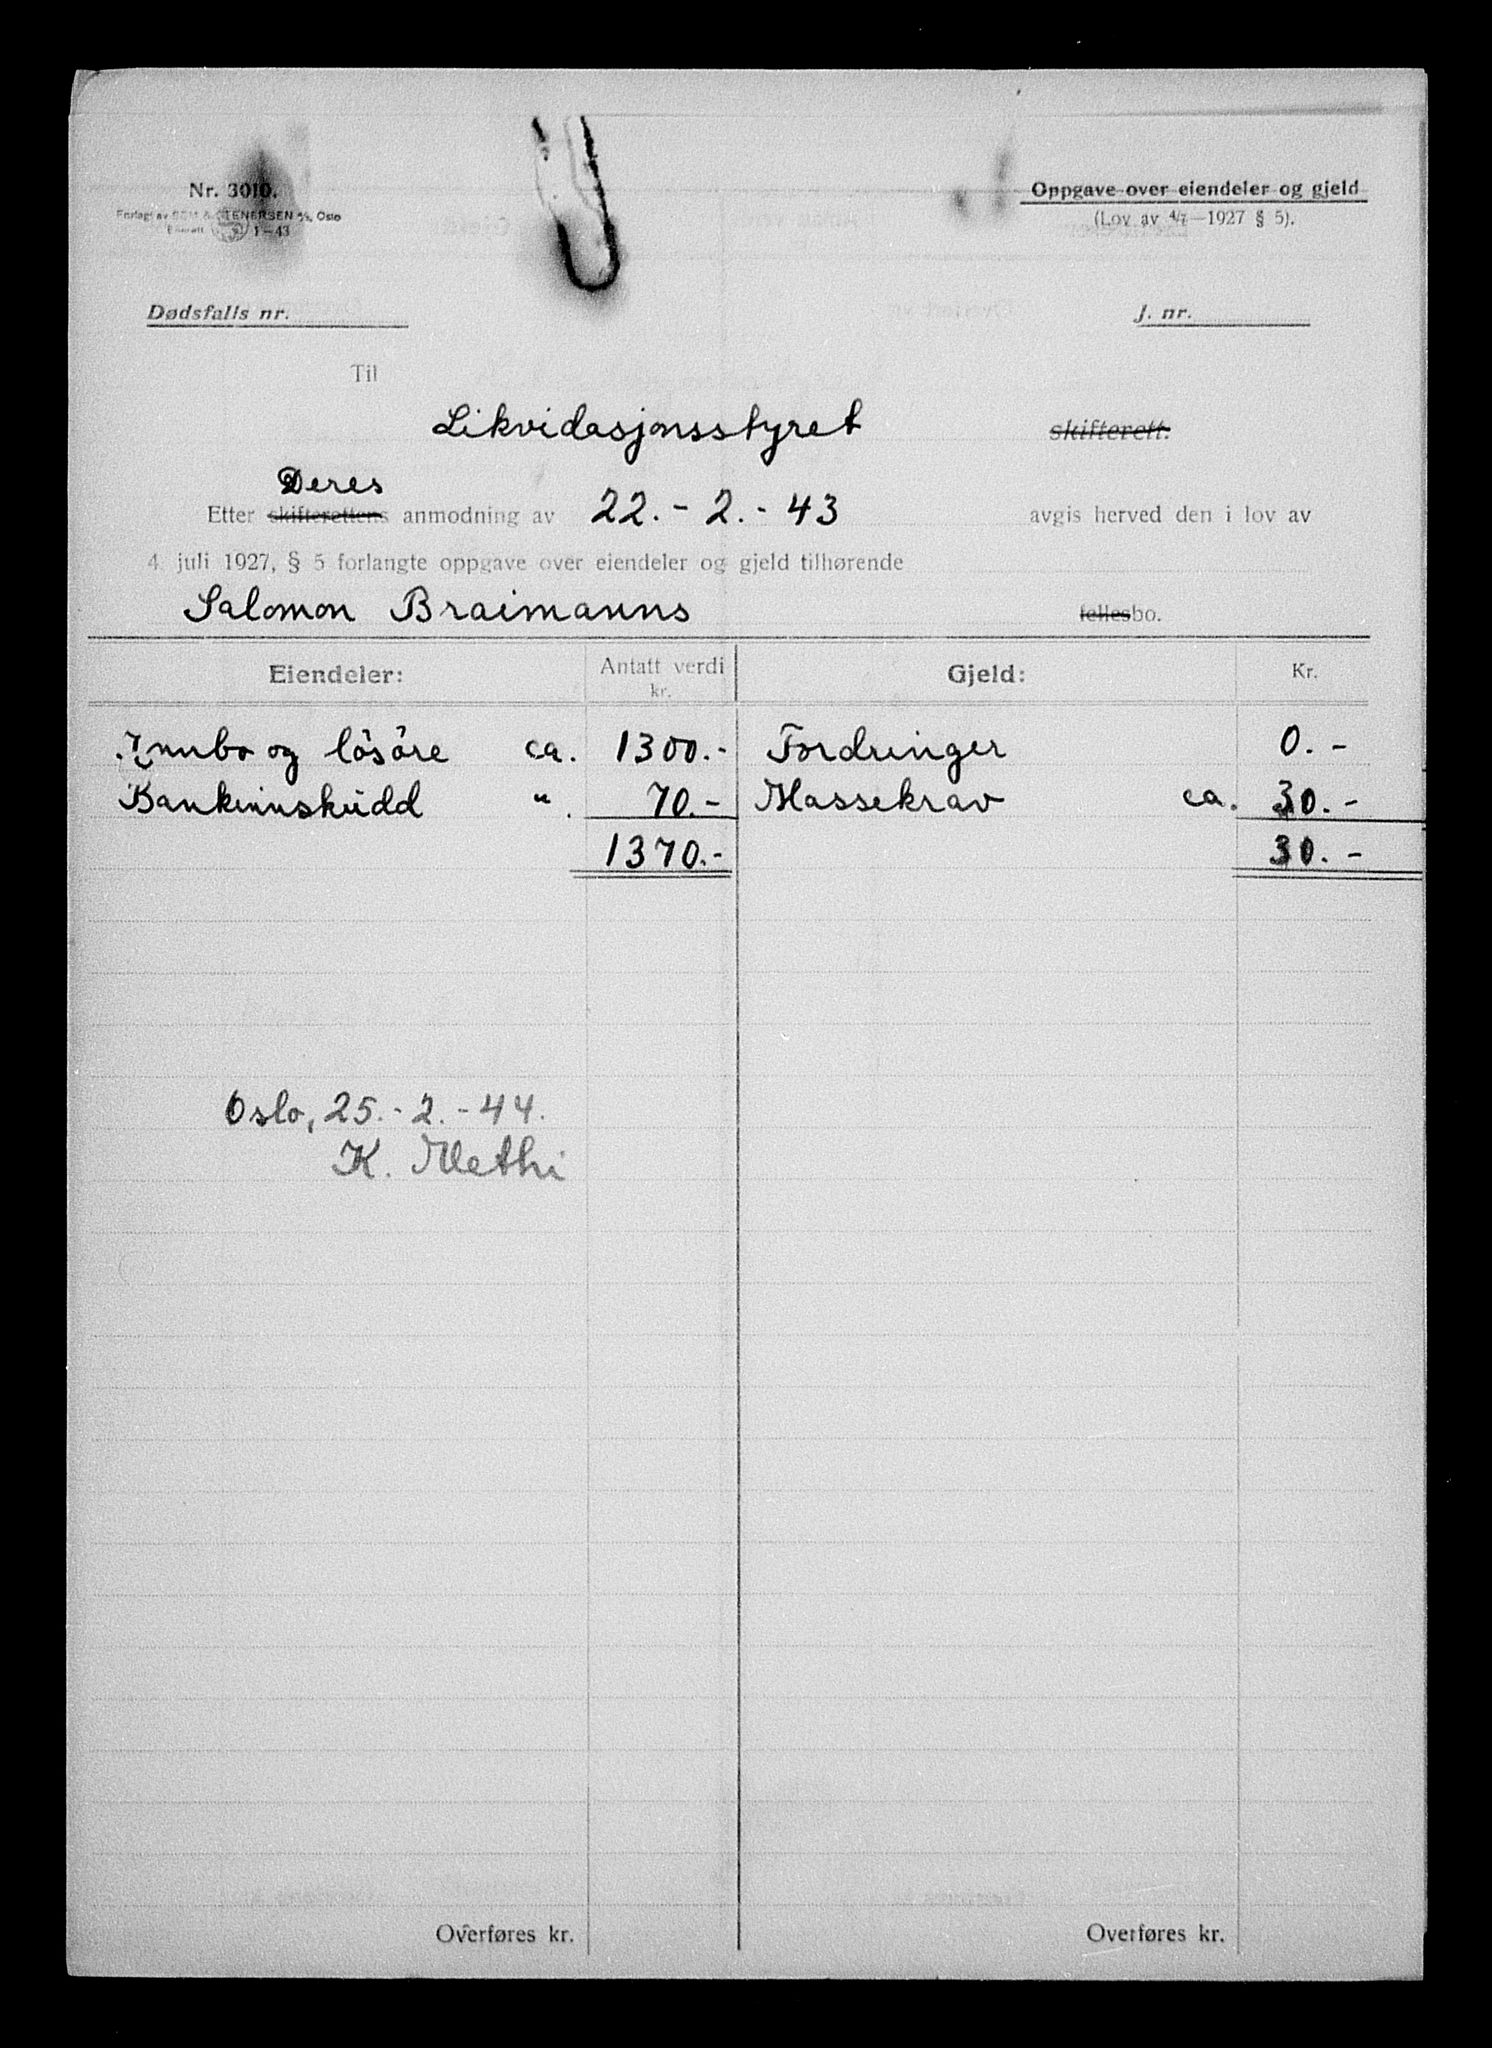 Nr. 3010.
Oppgave over eiendeler og gjeld
Forlagt av SEM & STENERSEN A/S, Oslo
(Lov av 4/7—1927 § 5).
1—43
Dødsfalls nr.
J. nr.
Til
Likvidasjonsstyret skifterett.
Deres
Etter skifterettens anmodning av 22.-2.-43 avgis herved den i lov av
4. juli 1927, § 5 forlangte oppgave over eiendeler og gjeld tilhørende
Salomon Braimanns fellesbo.
Eiendeler: Antatt verdi kr. Gjeld: Kr.
Innbo og lösöre ca. 1300.- Fordringer 0.-
Bankinnskudd " 70.- Massekrav ca. 30.-
1370.- 30.-
Oslo, 25.-2.-44.
K. Methi
Overføres kr. Overføres kr.